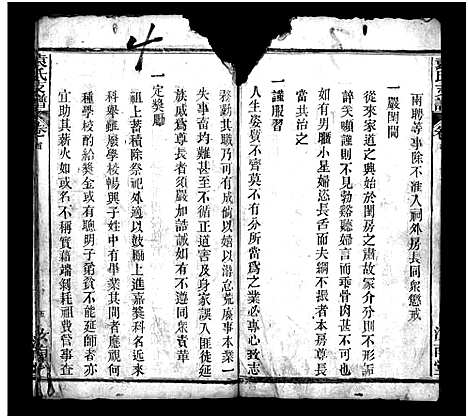 兩聘等事除不准入祠外房長同衆懲戒
一嚴閨閫
從來家道之興始於閨房之肅故家介於刑
詳笑嚬謹則不見勃谿聽婦言而乖骨肉甚不可
有男寵小星婦恣長舌而夫綱不振者本房尊長
共治之
一謹服習
人生姿質不齊莫不有分所當爲之業必專心致志
務勤其職乃可有成倘以嬉以滑怠荒廢事本業一
失事畜均難甚至不循正道害及身家誤入匪徒延
族戚爲尊長者須嚴加誥誡如有不遵同衆責革
一定獎勵
一蓄積除祭祀外適以鼓勵上進嘉獎科名近來
科舉雖廢學校暢興子姓中有畢業其間者應視何
種學校酌給獎金或有聰明子弟貧不能延師者亦
宜助其薪火如或名不稱實藉端剝耗祖費管事查
袁氏支譜
卷首
汝南堂